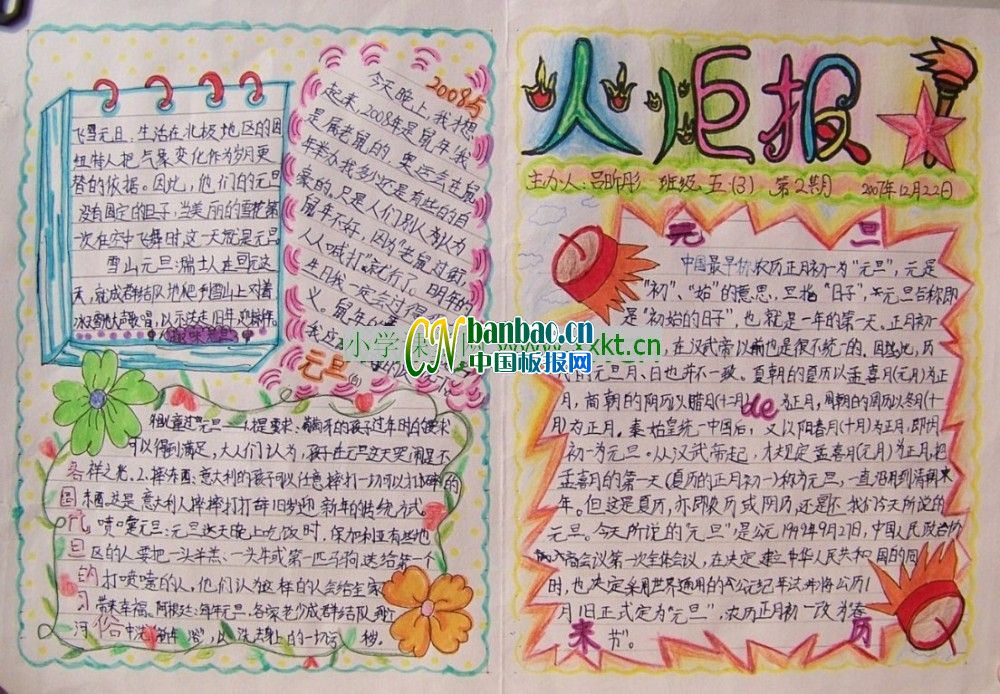 飞雪元旦:生活在北极地区的因
纽特人把气象变化作为岁月更
替的依据。因此,他们的元旦
没有固定的日子,当美丽的雪花第
一次在空中飞舞时,这一天就是元旦
雪山元旦:瑞士人在元旦这
天,就成群结队地爬到雪山上对着
冰天雪地大声歌唱,以示送走旧年,
2008与
今天晚上,我才想
起来,2008年是鼠年,我
是属老鼠的,奥运会在鼠
年举办我多少还是有些的自
豪的,只是人们别人为认为
鼠年不好,因为"老鼠过街
人人喊打"就行了。明年的
生日我一定会过得
义。鼠年的
我应
元旦
可以得到满足,大人们认为,孩子在元旦这天哭闹是不
祥之兆。2.摔东西:意大利的孩子可以任意摔打一切可以打碎的
东西,这是意大利人摔摔打打辞旧岁迎新年的传统方式。
喷嚏元旦:元旦这天晚上吃饭时,保加利亚有些地
区的人要把一头羊羔、一头牛或第一匹马驹送给第一个
打喷嚏的人,他们认为这样的人会给全家
带来幸福。阿根廷:每年元旦,各家老少成群结队到江
河中洗"新年浴",以洗去身上的一切
各国元旦的习俗
火炬报
主办人:吕昕彤 班级 五(3) 第2期 2007年12月22日
元旦
中国最早称农历正月初一为"元旦",元是
"初"、"始"的意思,旦指"日子",元旦合称即
是"初始的日子"也就是一年的第一天。正月初一
,在汉武帝以前也是很不统一的。因此,历
代的元旦月、日也并不一致。夏朝的夏历以孟喜月(元月)为正
月,商朝的阴历以腊月(十二月)de为正月,周朝的周历以冬月(十一
月)为正月。秦始皇统一中国后,又以阳春月(十月)为正月,即十月
初一为元旦。从汉武帝起,才规定孟喜月(元月)为正月,把
孟喜月的第一天(夏历的正月初一)称为元旦,一直沿用到清朝末
年。但这是夏历,亦即农历或阴历,还是不我们今天所说的
元旦。今天所说的"元旦"是公元1949年9月27日,中国人民政治协
商会议第一次全体会议,在决定建立中华人民共和国的同
时,也决定采用世界通用的公元纪年法,并将公历1
月1日正式定为"元旦",农历正月初一改为"春
节"。
来历
banbao.cn
CN
中国板报网
小学课
xkt.cn